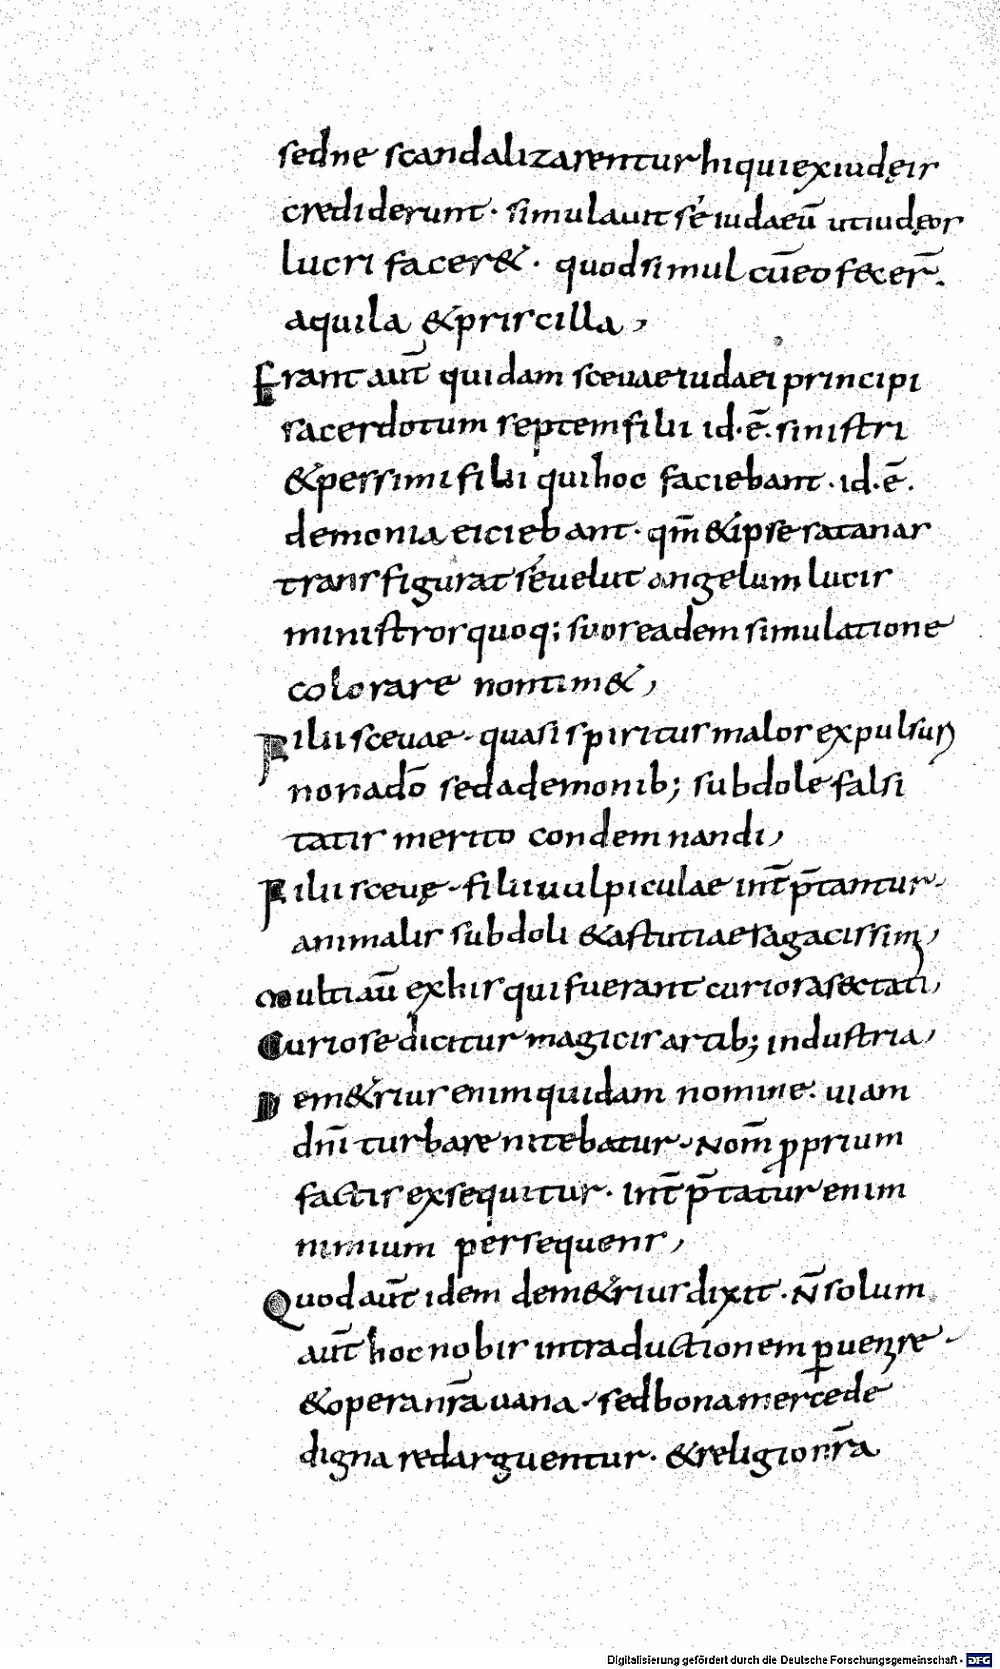 sed ne scandalizarentur hi qui ex iudęis
crediderunt · simulauit sé iudaeū ut iudęos
lucri facer& · quod simul cū eo fecer̄.
aquila & priscilla,
Erant aut̄ quidam sceuae iudaei principi
sacerdotum septem filii id·ē· sinistri
& pessimi filii qui hoc faciebant · id·ē·
demonia eiciebant · qm̄ & ipse satanas
transfigurat sé uelut angelum lucis
ministros quoq; suos eadem simulatione
colorare non tim&,
Filii sceuae · quasi spiritus malos expulsuꝝ
non a dō sed a demonib; subdole falsi
tatis merito condemnandi,
Filii sceuę · filii uulpiculae int̄p̄tantur ·
animalis subdoli & astutiae sagacissim,
Multi aū ex his qui fuerant curiosa sectati,
Curiose dicitur magicis artib; industria,
Dem&rius enim quidam nomine · uiam
dn̄i turbare nitebatur · Nom̄ ꝓprium
factis exsequitur · int̄p̄tatur enim
nimium persequens,
Quod aut̄ idem dem&rius dixit · N̄ solum
aut̄ hoc nobis in traductionem ꝑuenire ·
& opera nr̄a uana · sed bona mercede
digna redarguentur · & religio nr̄a
Digitalisierung gefördert durch die Deutsche Forschungsgemeinschaft - DFG